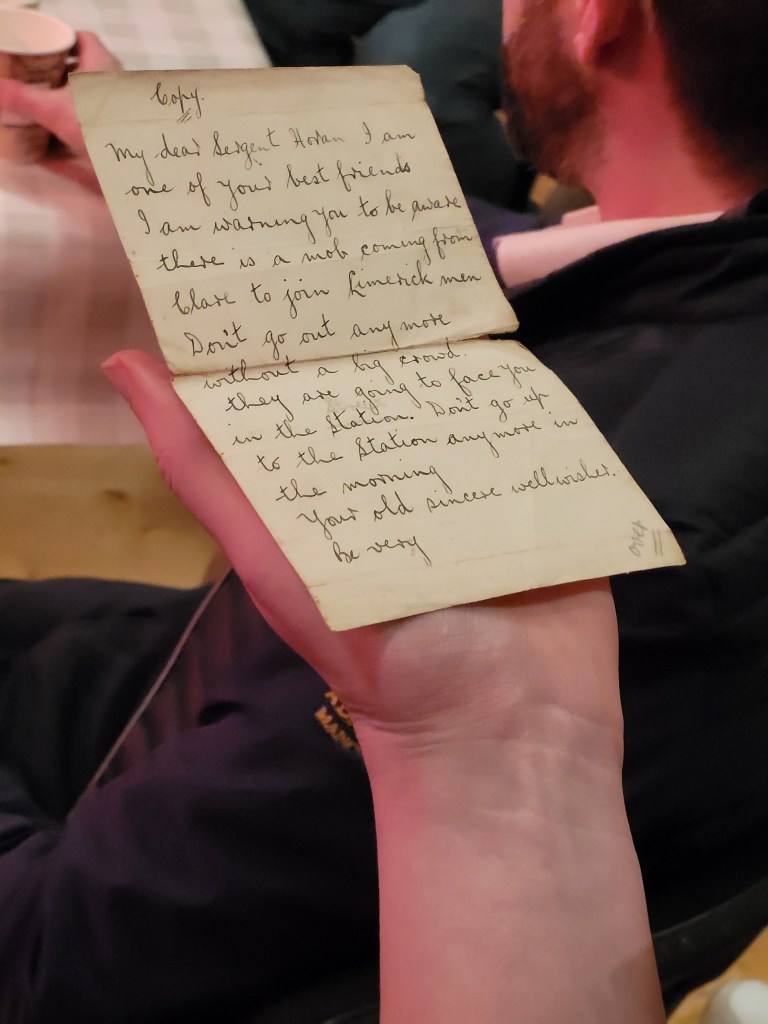 Copy.
My dear Sergent Horan I am
one of your best friends
I am warning you to be aware
there is a mob coming from
Clare to join Limerick men
Don't go out any more
without a big crowd.
they are going to face you
in the Station. Don't go up
to the Station anymore in
the morning
Your old sincere wellwisher.
Be very
over